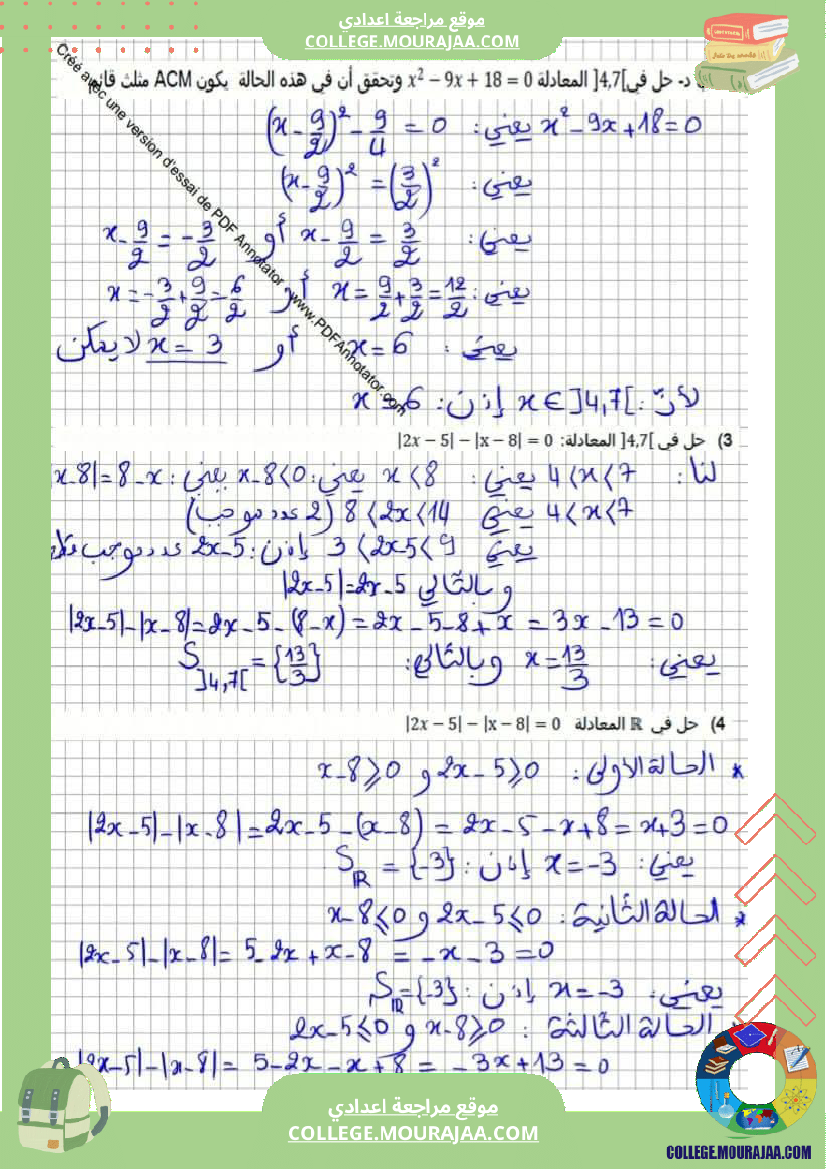 موقع مراجعة اعدادي
COLLEGE.MOURAJAA.COM
Créé avec une version d'essai de PDF Annotator - www.PDFAnnotator.com
د- حل في ]4,7[ المعادلة x² − 9x + 18 = 0 وتحقق أن في هذه الحالة يكون ACM مثلث قائم
x² - 9x + 18 = 0 يعني: (x - 9/2)² - 9/4 = 0
يعني: (x - 9/2)² = (3/2)²
يعني: x - 9/2 = 3/2 أو x - 9/2 = -3/2
يعني: x = 9/2 + 3/2 = 12/2 أو x = -3/2 + 9/2 = 6/2
يعني: x = 6 أو x = 3 لا يمكن
لأن: x ∈ ]4,7[ إذن: x = 6
3) حل في ]4,7[ المعادلة: |2x − 5| − |x − 8| = 0
لنا: 4 < x < 7 يعني: x < 8 يعني: x - 8 < 0 يعني: x - 8| = 8 - x
4 < x < 7 يعني 8 < 2x < 14 (2 عدد موجب)
يعني 3 < 2x - 5 < 9 إذن: 2x - 5 عدد موجب
وبالتالي |2x - 5| = 2x - 5
|2x - 5| - |x - 8| = 2x - 5 - (8 - x) = 2x - 5 - 8 + x = 3x - 13 = 0
يعني: x = 13/3 وبالتالي: S]4,7[ = {13/3}
4) حل في ℝ المعادلة |2x − 5| − |x − 8| = 0
* الحالة الأولى: 2x - 5 ⩾ 0 و x - 8 ⩾ 0
|2x - 5| - |x - 8| = 2x - 5 - (x - 8) = 2x - 5 - x + 8 = x + 3 = 0
يعني: x = -3 إذن: Sℝ = {-3}
* الحالة الثانية: 2x - 5 ⩽ 0 و x - 8 ⩽ 0
|2x - 5| - |x - 8| = 5 - 2x + x - 8 = -x - 3 = 0
يعني: x = -3 إذن: Sℝ = {-3}
الحالة الثالثة: x - 8 ⩾ 0 و 2x - 5 ⩽ 0
|2x - 5| - |x - 8| = 5 - 2x - x + 8 = -3x + 13 = 0
موقع مراجعة اعدادي
COLLEGE.MOURAJAA.COM
COLLEGE.MOURAJAA.COM